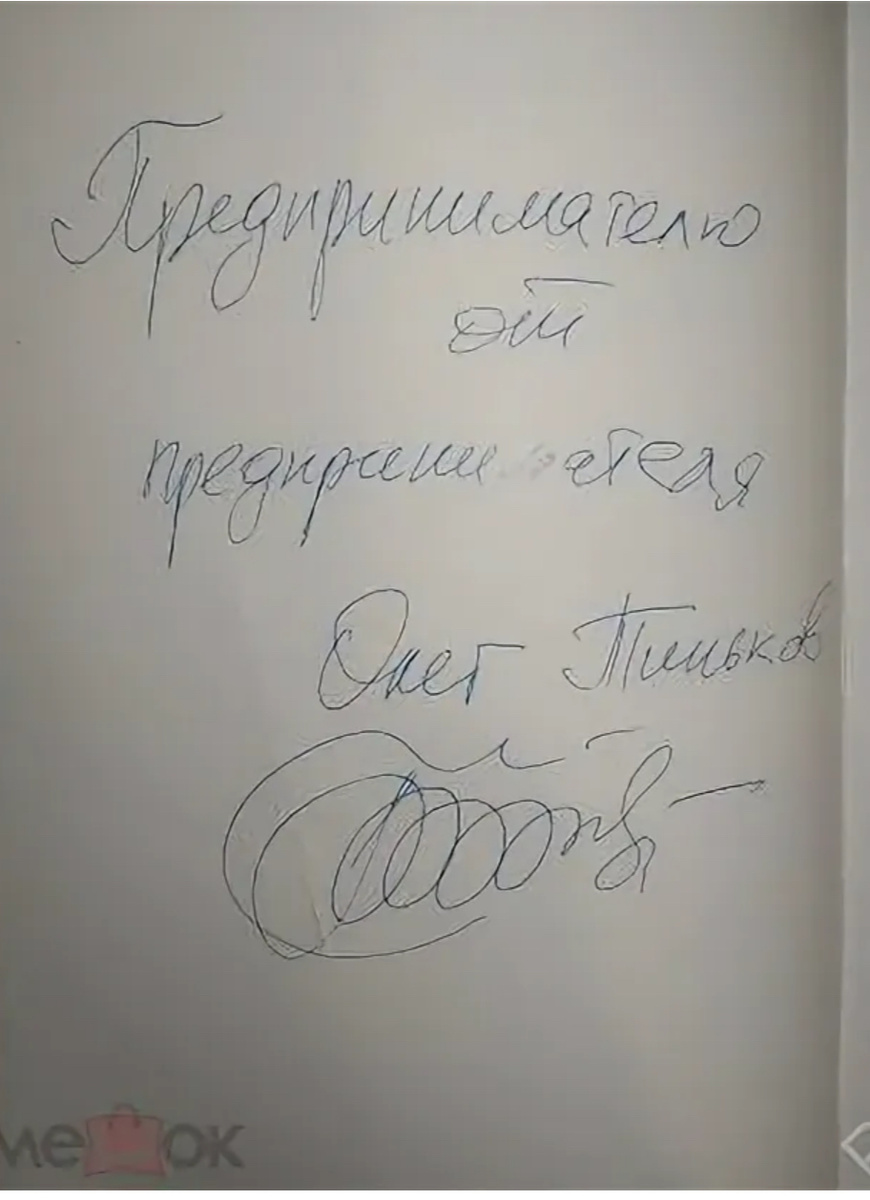 Предпринимателю
от
предпринимателя
Олег Тиньков
мешок